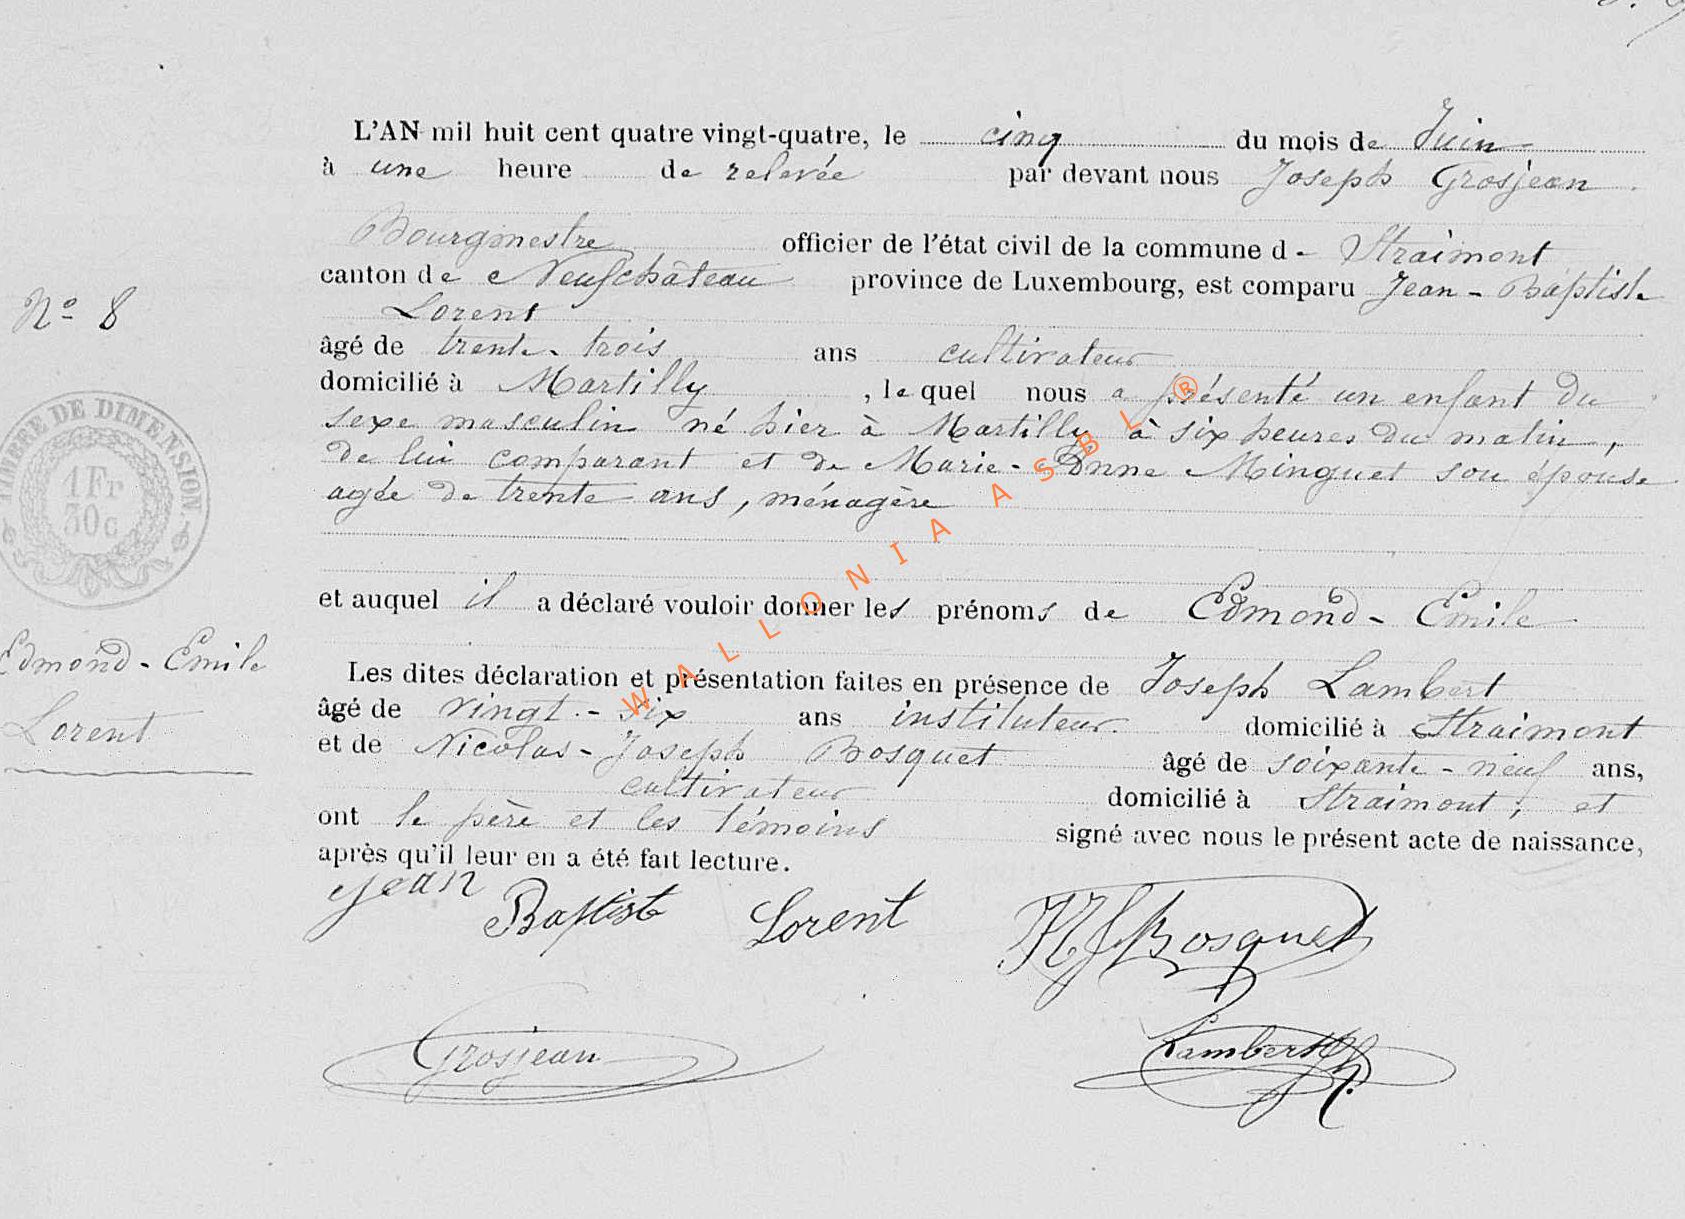 L'AN mil huit cent quatre vingt-quatre, le cinq du mois de Juin
à une heure de relevée par devant nous Joseph Grosjean
Bourgmestre officier de l'état civil de la commune de Straimont
canton de Neufchâteau province de Luxembourg, est comparu Jean-Baptiste
Lorent
âgé de trente-trois ans cultivateur
domicilié à Martilly, lequel nous a présenté un enfant du
sexe masculin né hier à Martilly à six heures du matin,
de lui comparant et de Marie-Anne Minguet son épouse
agée de trente ans, ménagère
et auquel il a déclaré vouloir donner les prénoms de Edmond-Emile
Les dites déclaration et présentation faites en présence de Joseph Lambert
âgé de vingt-six ans instituteur. domicilié à Straimont
et de Nicolas-Joseph Bosquet âgé de soixante-neuf ans,
cultivateur domicilié à Straimont; et
ont le père et les témoins signé avec nous le présent acte de naissance,
après qu'il leur en a été fait lecture.
Jean Baptiste Lorent NJBosquet
Grosjean Lambert
Nº 8
TIMBRE DE DIMENSION
1 Fr
30 c
Edmond-Emile
Lorent
WALLONIA ASBL ®